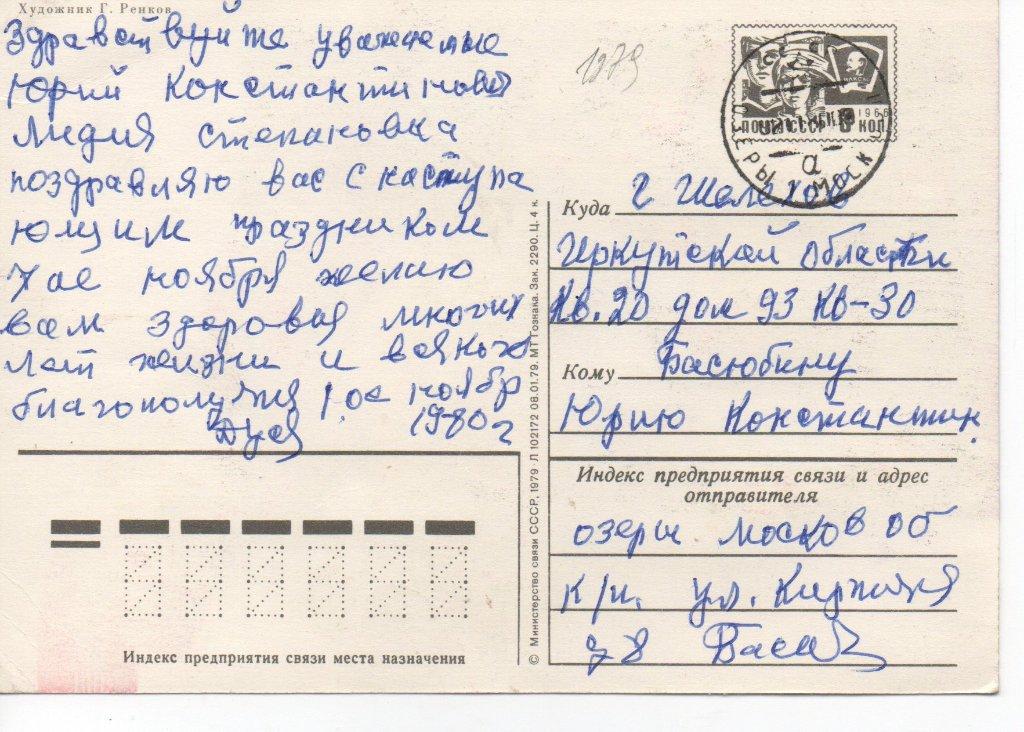 Художник Г. Ренков
Здравствуйте уважаемые
Юрий Константинович
Лидия степановка
поздравляю вас с наступа
ющим праздником
7 ое ноября желаю
вам здоровья многих
лет жизни и всяких
благополучия 1 ое ноябр
Дуся 1980 г
1979
ПОЧТА СССР
КОЛ.
1966
ВЛКСМ
а
Куда г Шелехов
Иркутской области
Кв. 20 дом 93 Кв-30
Кому Басюбину
Юрию Константин.
Индекс предприятия связи и адрес
отправителя
озеры москов об
ул. Кирпичн
78
Индекс предприятия связи места назначения
© Министерство связи СССР, 1979 · Л 102172 08.01.79. МТ Гознака. Зак. 2290. Ц. 4 к.